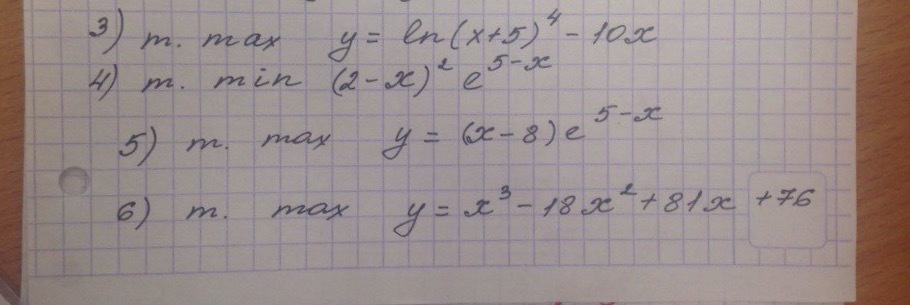 3) т. max y = ln(x+5)⁴ - 10x
4) т. min (2-x)² e⁵⁻ˣ
5) т. max y = (x-8) e⁵⁻ˣ
6) т. max y = x³ - 18x² + 81x + 76